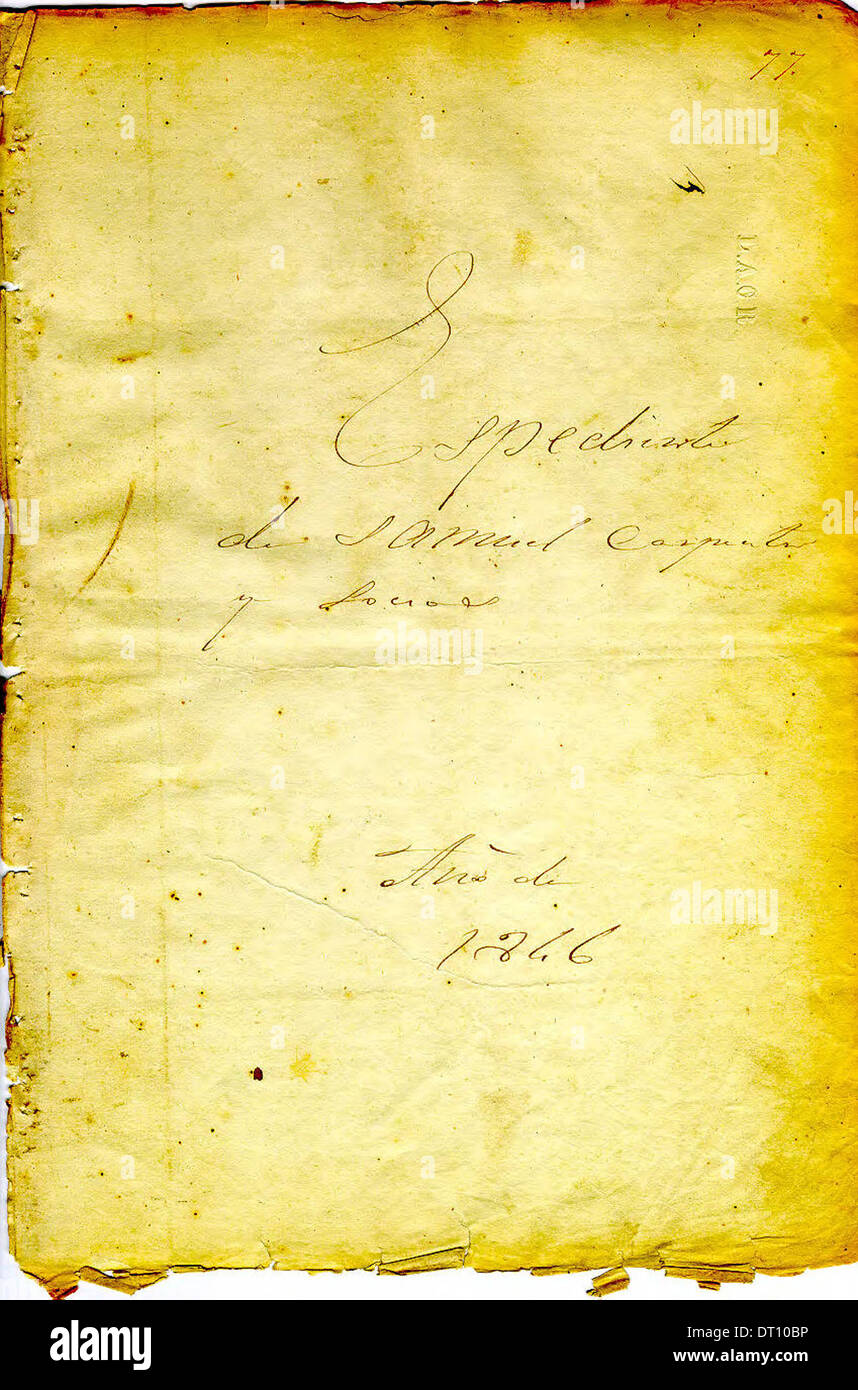 77.
LACR
Espediente
de Samuel Carpenter
y socios
Año de
1846
alamy
www.alamy.com
DT10BP